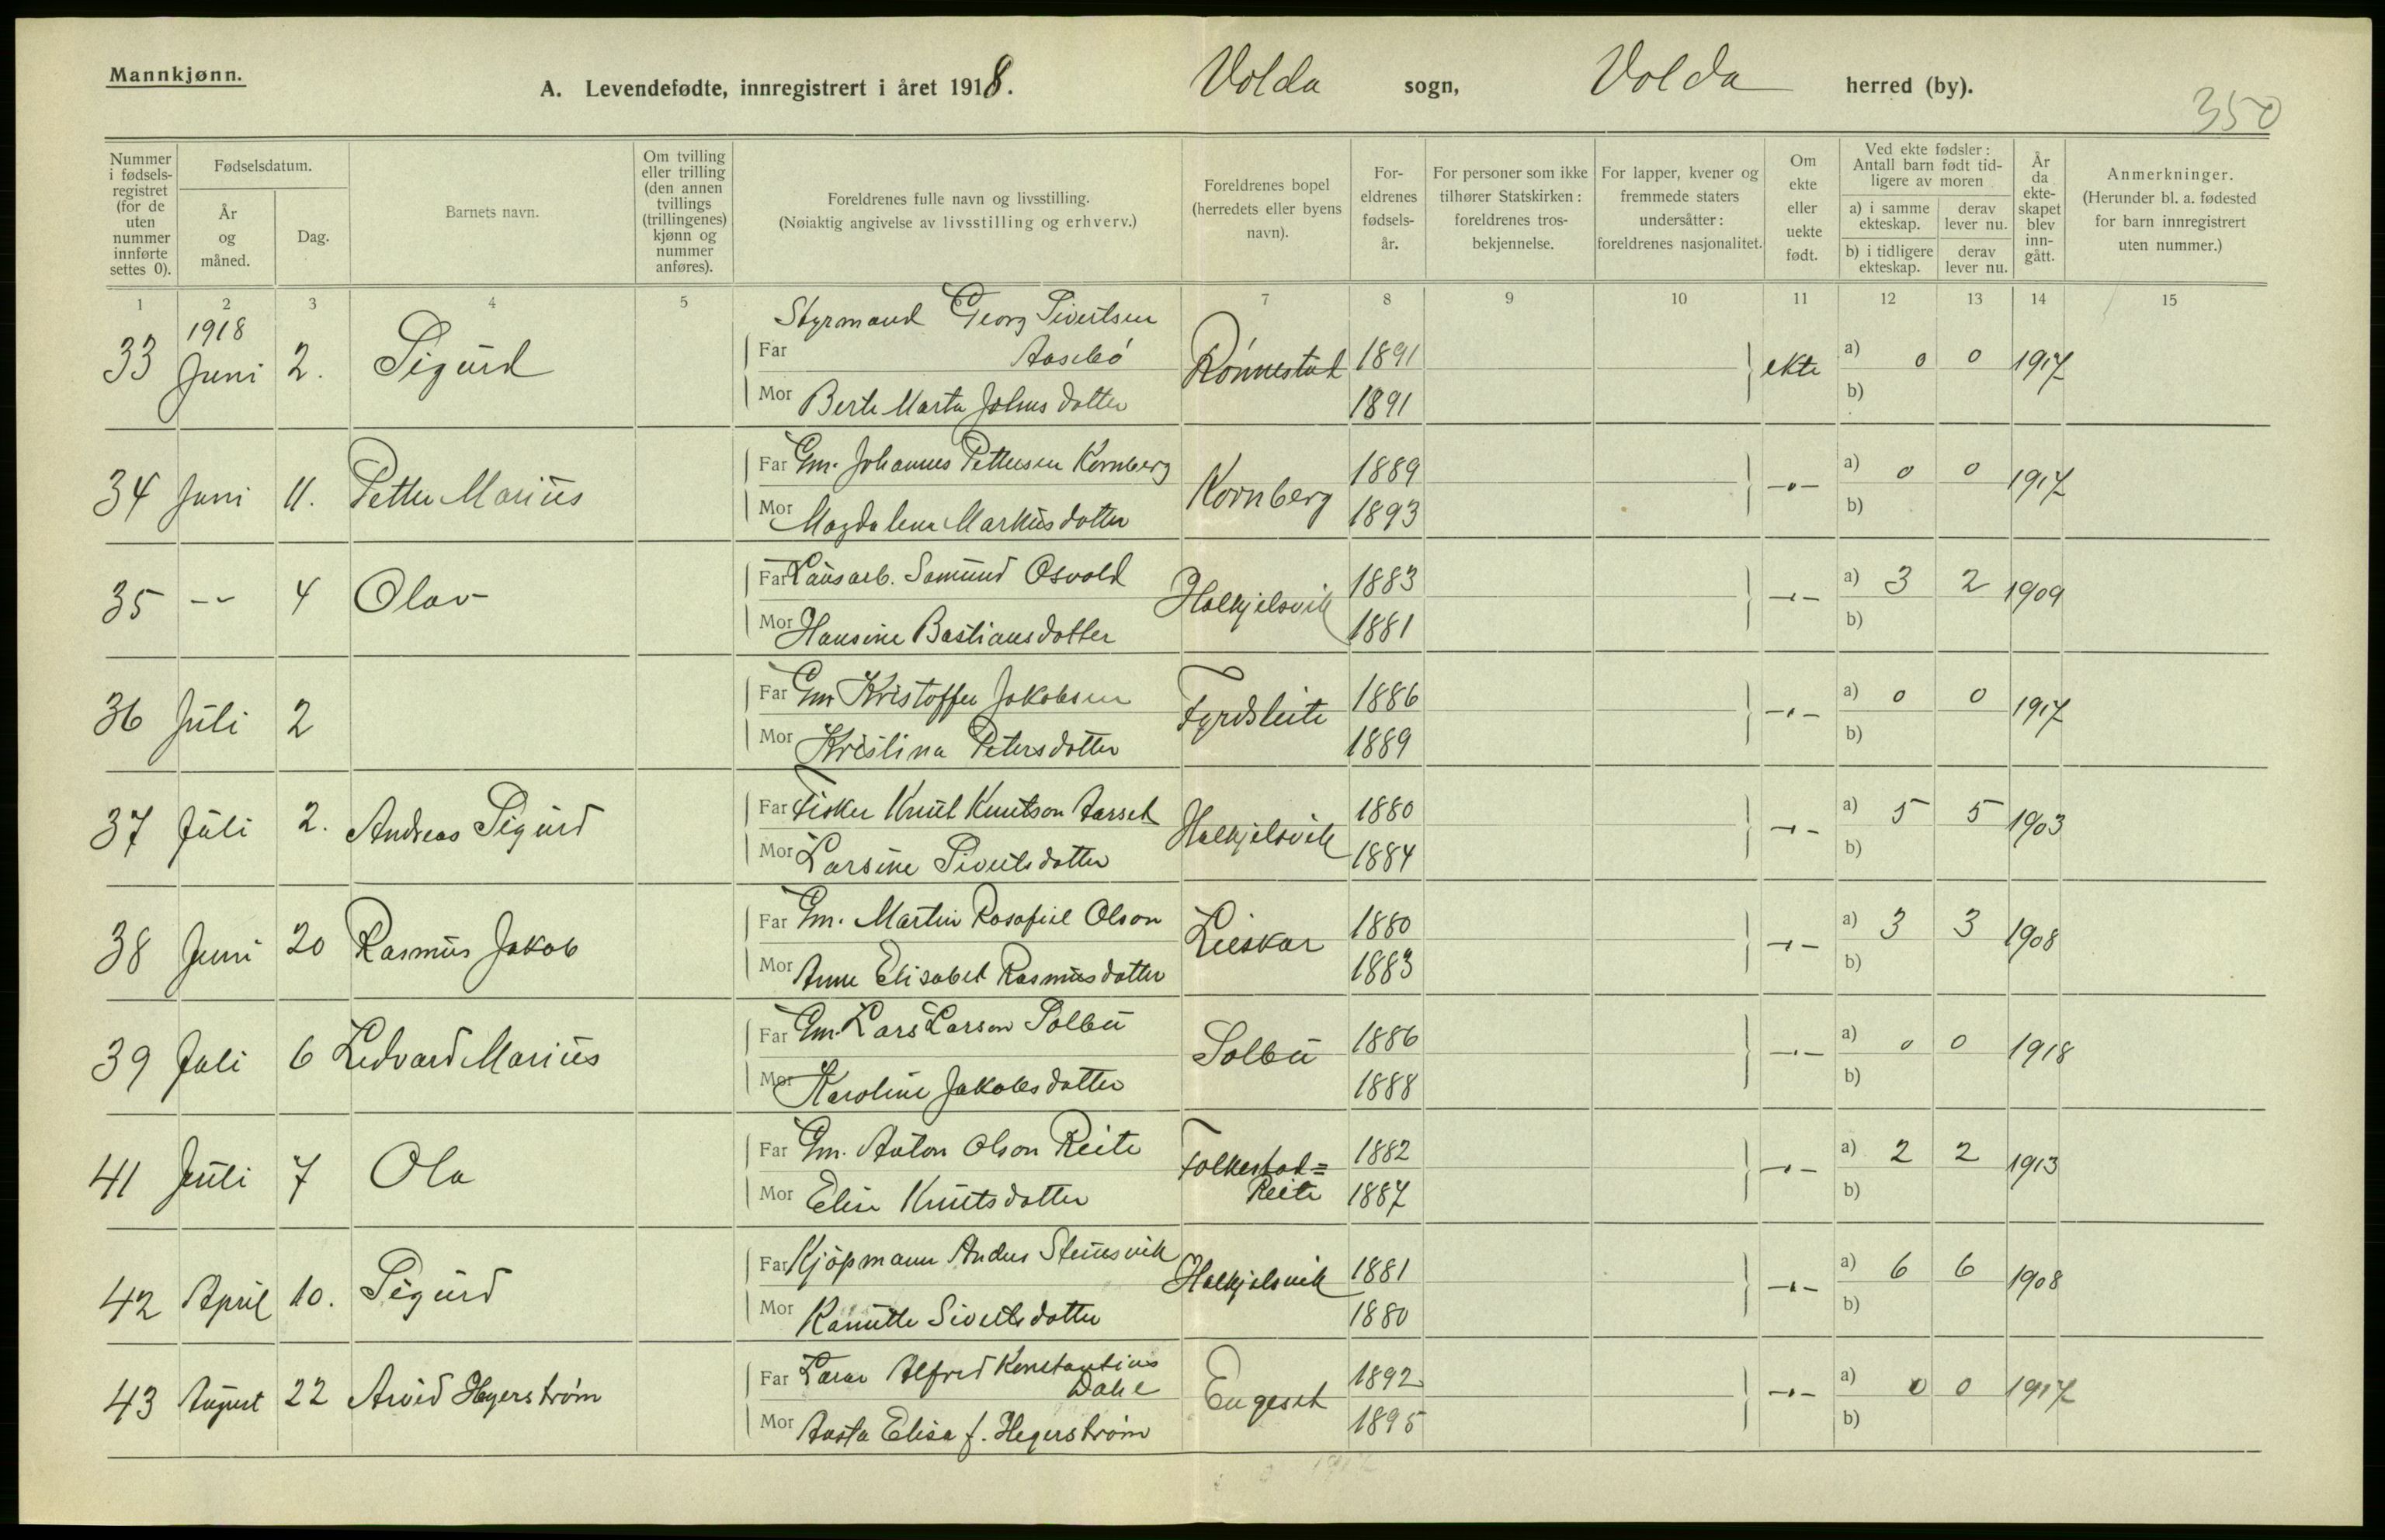 Mannkjønn.
A. Levendefødte, innregistrert i året 1918. Volda sogn, Volda herred (by).
350
Nummer i fødselsregistret (for de uten nummer innførte settes 0).
Fødselsdatum.
År og måned.
Dag.
Barnets navn.
Om tvilling eller trilling (den annen tvillings (trillingenes) kjønn og nummer anføres).
Foreldrenes fulle navn og livsstilling.
(Nøiaktig angivelse av livsstilling og erhverv.)
Foreldrenes bopel (herredets eller byens navn).
Foreldrenes fødselsår.
For personer som ikke tilhører Statskirken: foreldrenes trosbekjennelse.
For lapper, kvener og fremmede staters undersåtter: foreldrenes nasjonalitet.
Om ekte eller uekte født.
Ved ekte fødsler: Antall barn født tidligere av moren
a) i samme ekteskap. derav lever nu.
b) i tidligere ekteskap. derav lever nu.
År da ekteskapet blev inngått.
Anmerkninger.
(Herunder bl. a. fødested for barn innregistrert uten nummer.)
1 2 3 4 5 7 8 9 10 11 12 13 14 15
1918
Styrmand Georg Sivertsen
33 Juni 2. Sigurd Far Aasebö Rönnestad 1891 ekte a) 0 0 1917
Mor Berte Marta Johnsdotter 1891 b)
Far Gm. Johannes Pettersen Kornberg 1889 a) 0 0
34 Juni 11. Petter Marius Kornberg -"- 1917
Mor Magdalena Markusdotter 1893 b)
Far Lausarb. Samund Osvold 1883 a) 3 2
35 -"- 4 Olav Halkjelsvik -"- 1909
Mor Hansine Bastiansdotter 1881 b)
Far Gm Kristoffer Jakobsen 1886 a) 0 0
36 Juli 2 Fyrdsleite -"- 1917
Mor Kristina Petersdotter 1889 b)
Far Fisker Knut Knutson Aarset 1880 a) 5 5
37 Juli 2. Andreas Sigurd Halkjelsvik -"- 1903
Mor Larsine Sivertsdotter 1884 b)
Far Gm. Martin Rasafiel Olson 1880 a) 3 3
38 Juni 20 Rasmus Jakob Lieskar -"- 1908
Mor Anne Elisabet Rasmusdotter 1883 b)
Far Gm. Lars Larson Solbu 1886 a) 0 0
39 Juli 6 Ledvard Marius Solbu -"- 1918
Mor Karoline Jakobsdotter 1888 b)
Far Gm. Anton Olson Reite 1882 a) 2 2
41 Juli 7 Ola Folkestad= Reite -"- 1913
Mor Elise Knutsdotter 1887 b)
Far Kjöpmann Anders Steinsvik 1881 a) 6 6
42 April 10. Sigurd Halkjelsvik -"- 1908
Mor Kanutte Sivertsdotter 1880 b)
Far Lærar Alfred Konstantius Dahle 1892 a) 0 0
43 August 22 Arvid Hegerström Engeset -"- 1917
Mor Aasta Elisa f. Hegerström 1895 b)